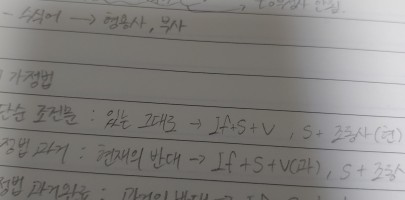 - 수식어 → 형용사, 부사
가정법
단순 조건문 : 있는 그대로 → If+S+V , S+조동사(현)
정법 과거 : 현재의 반대 → If+S+V(과), S+조동사
정법 과거완료 : 과거의 반대